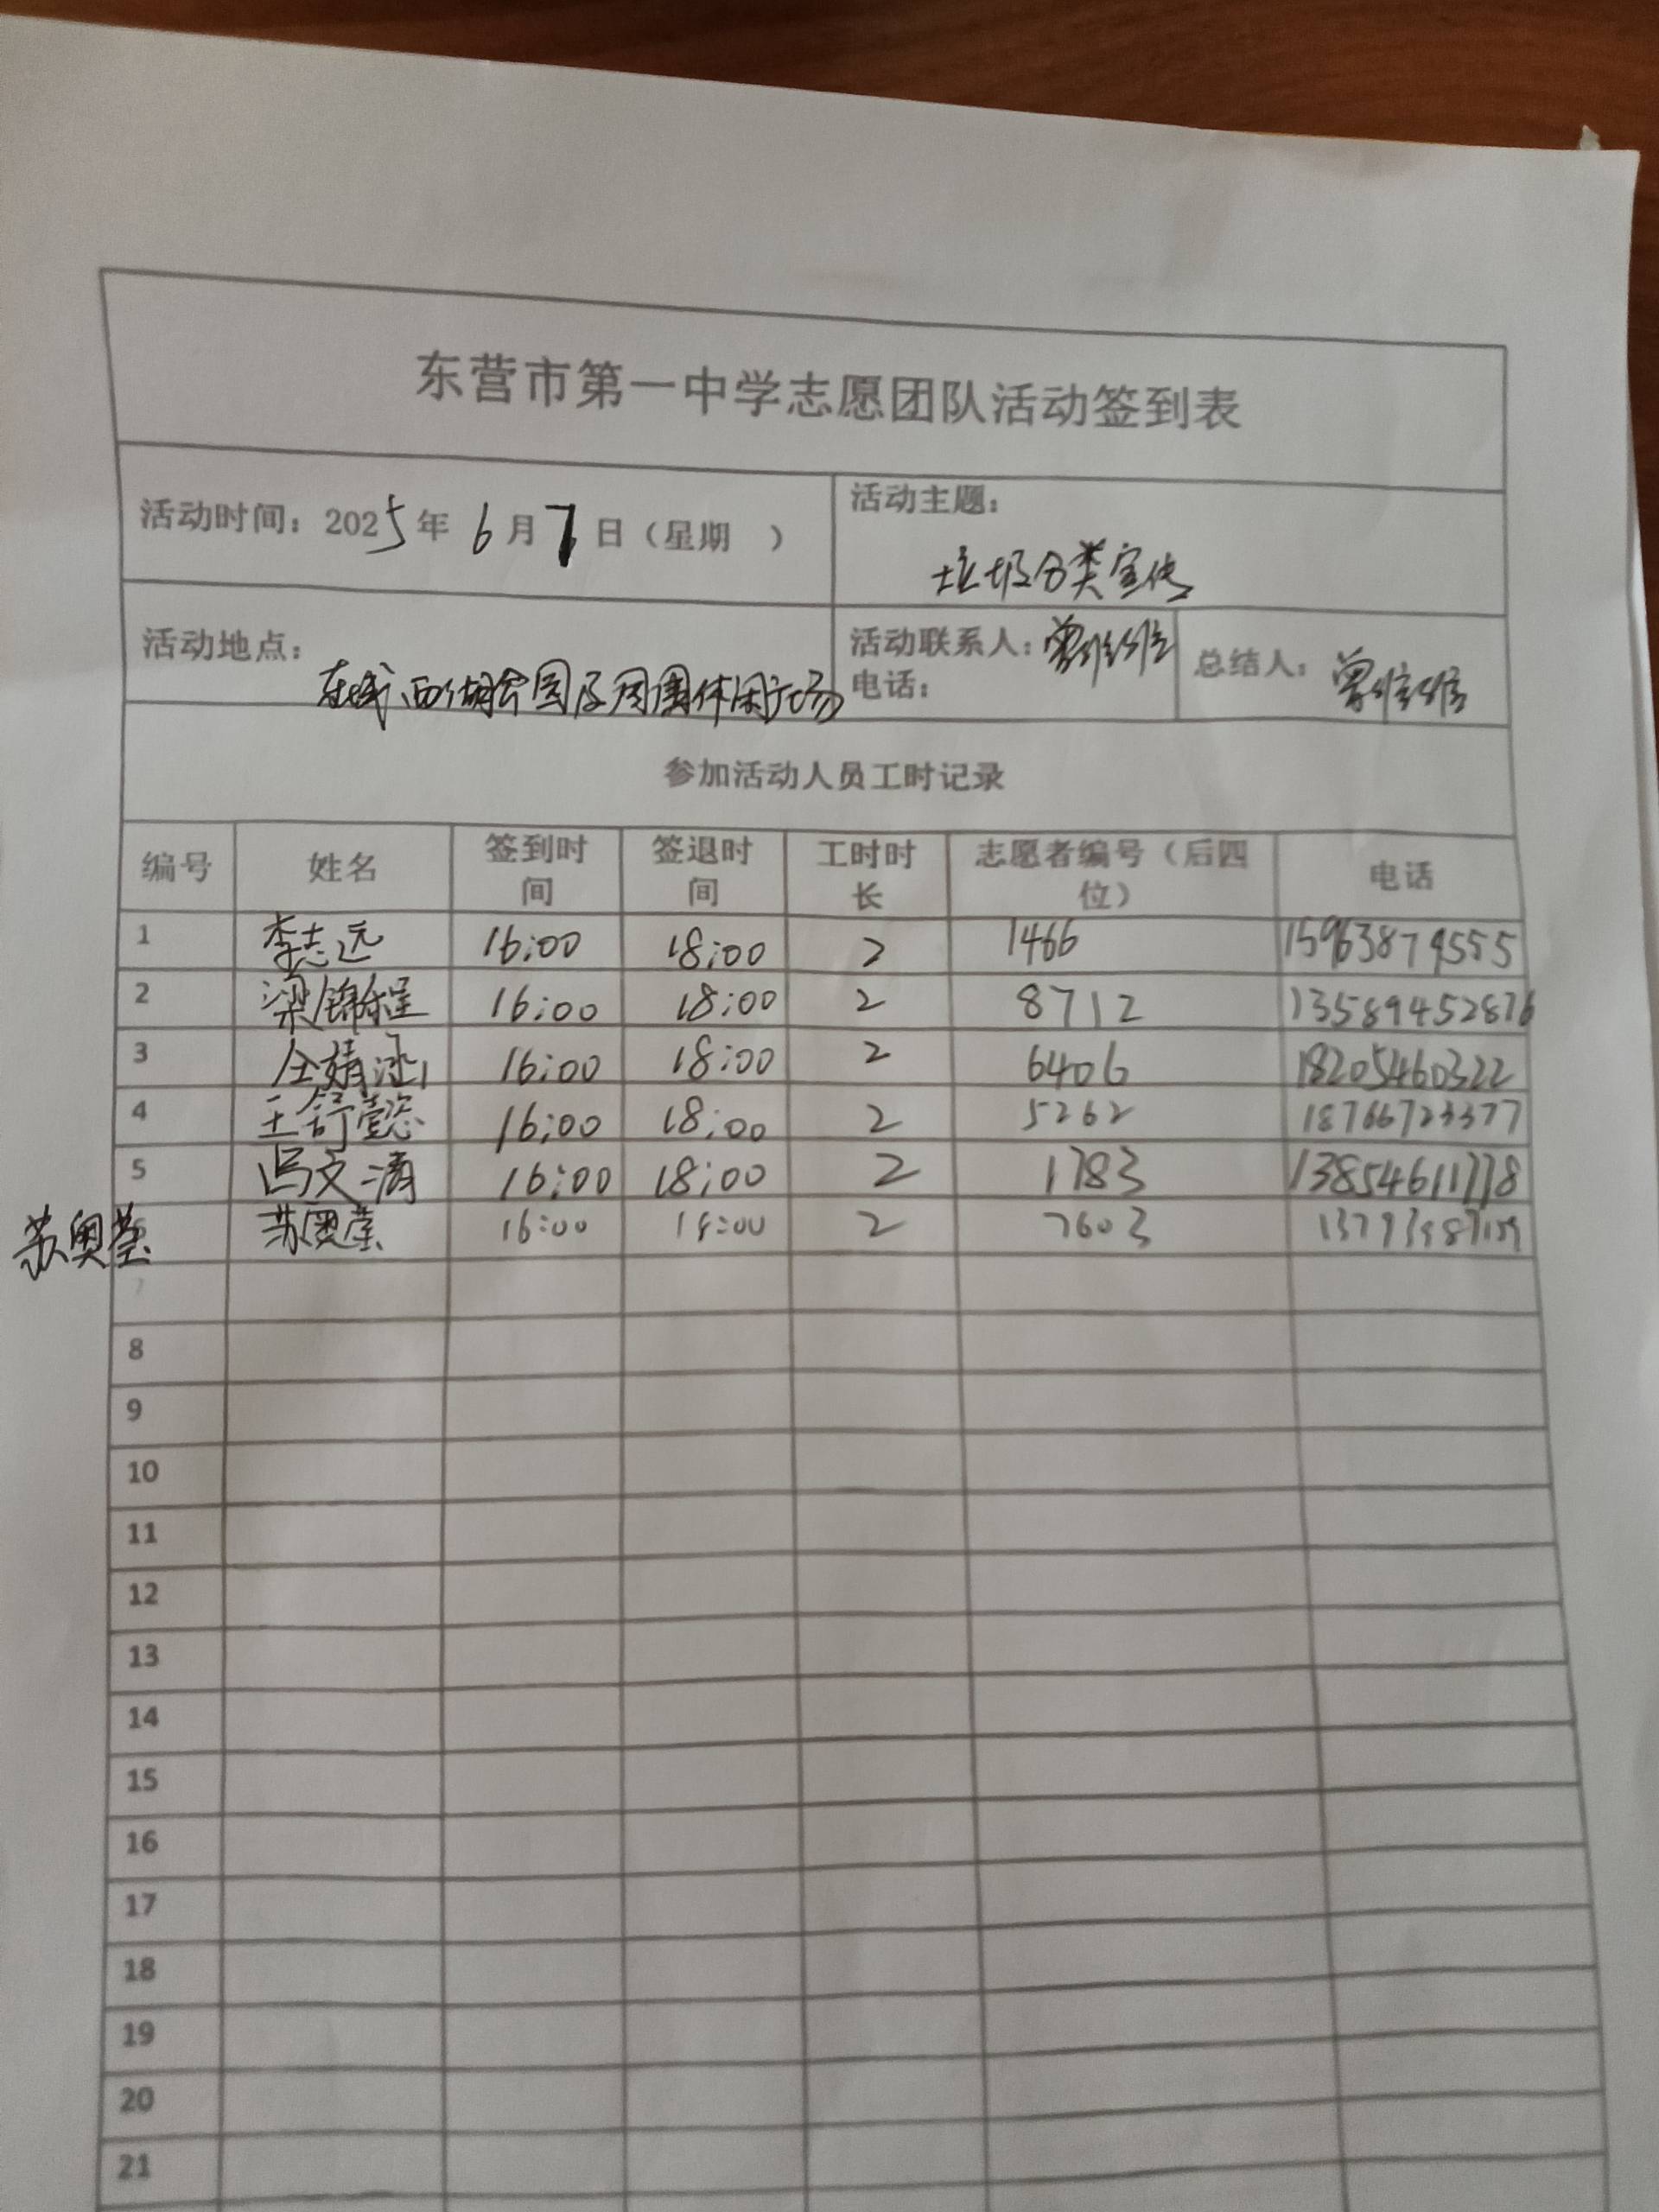 东营市第一中学志愿团队活动签到表
活动时间：2025年 6月7日（星期　）
活动主题：
垃圾分类宣传
活动地点：
东城西湖公园及周围休闲广场
活动联系人：曾维维
电话：
总结人：曾维维
参加活动人员工时记录
编号 姓名 签到时间 签退时间 工时时长 志愿者编号（后四位） 电话
1 李志远 16:00 18:00 2 1466 15963879555
2 梁锦程 16:00 18:00 2 8712 13589452876
3 16:00 18:00 2 6406 18205460322
4 王舒懿 16:00 18:00 2 5262 18766723377
5 冯文清 16:00 18:00 2 1783 13854611778
苏奥莹
6 苏奥莹 16:00 18:00 2 7603
7
8
9
10
11
12
13
14
15
16
17
18
19
20
21